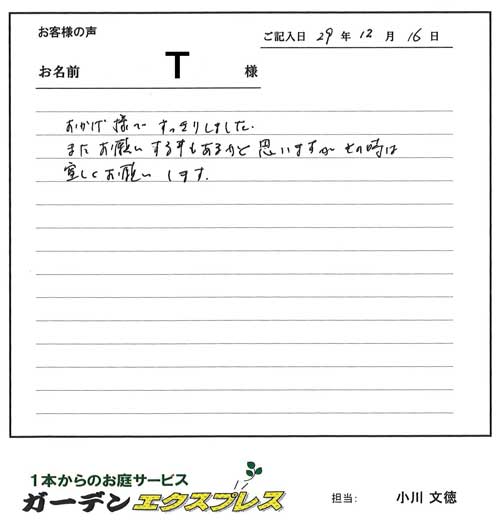 お客様の声
ご記入日 29 年 12 月 16 日
お名前 T 様
おかげ様で すっきりしました.
またお願いする事もあるかと思いますがその時は
宜しくお願い します.
1本からのお庭サービス
ガーデンエクスプレス
担当: 小川 文徳